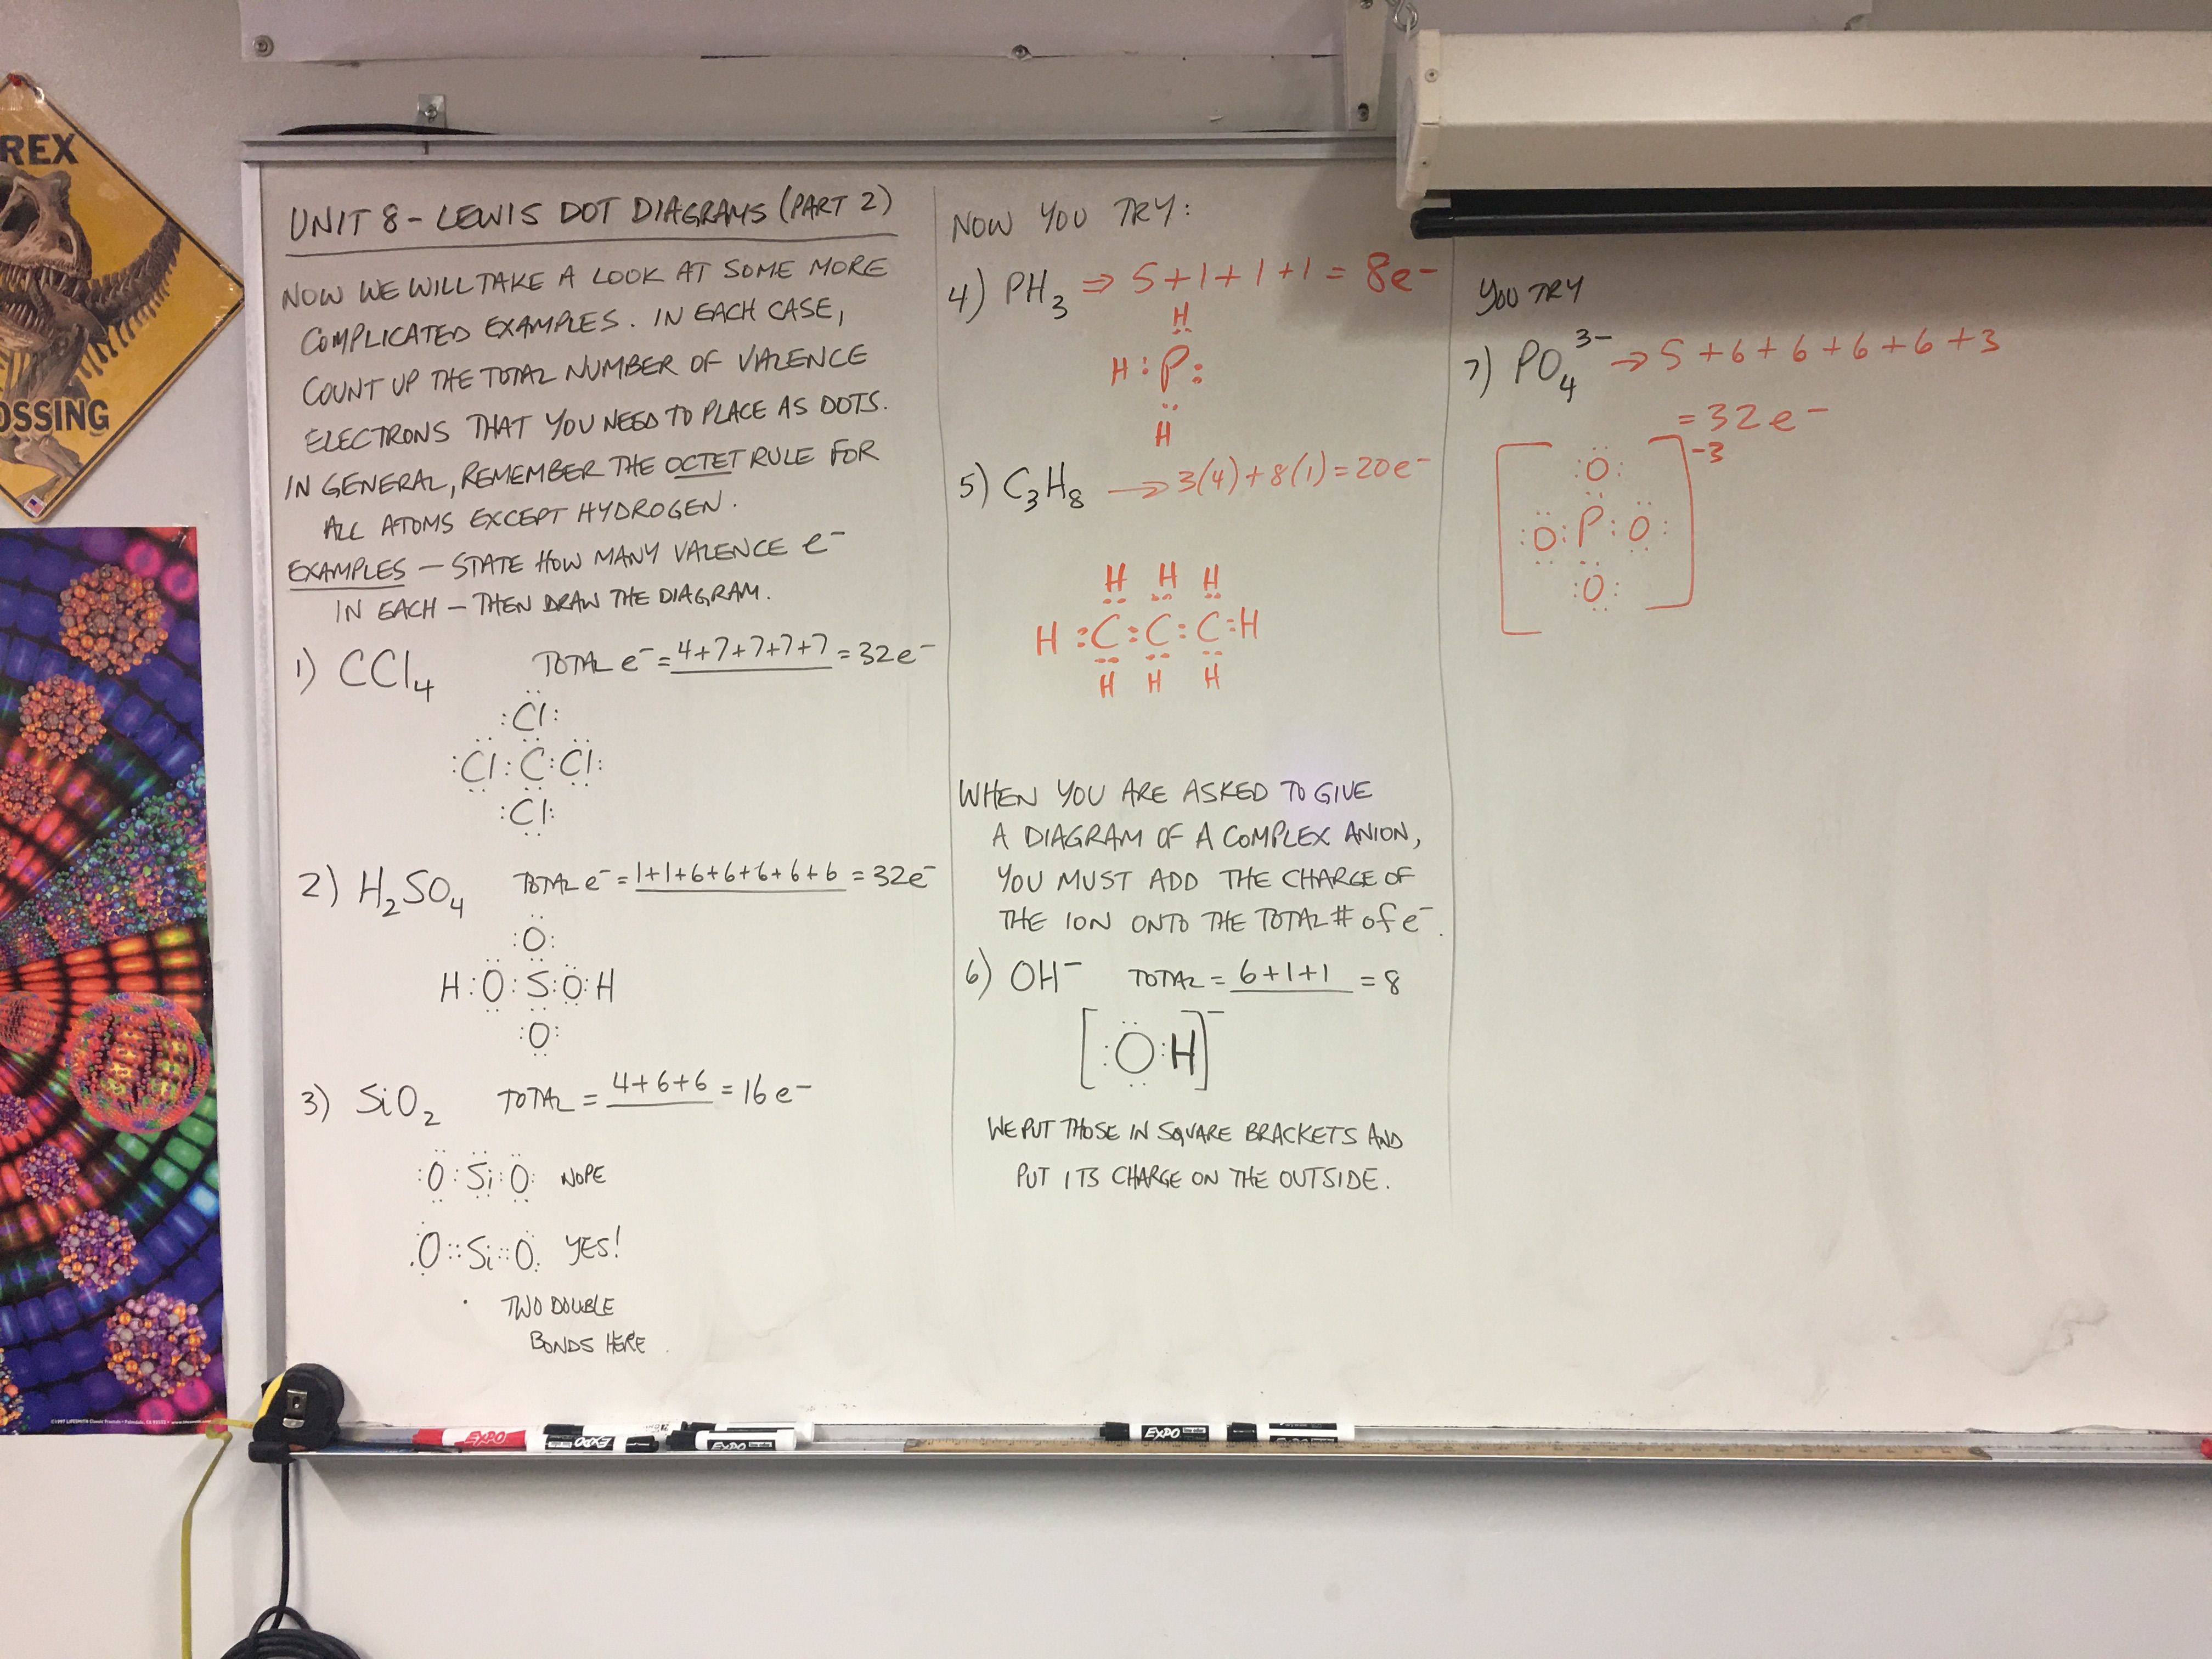 REX
OSSING
UNIT 8 - LEWIS DOT DIAGRAMS (PART 2)
NOW WE WILL TAKE A LOOK AT SOME MORE
COMPLICATED EXAMPLES. IN EACH CASE,
COUNT UP THE TOTAL NUMBER OF VALENCE
ELECTRONS THAT YOU NEED TO PLACE AS DOTS.
IN GENERAL, REMEMBER THE OCTET RULE FOR
ALL ATOMS EXCEPT HYDROGEN.
EXAMPLES - STATE HOW MANY VALENCE e⁻
IN EACH - THEN DRAW THE DIAGRAM.
1) CCl₄ TOTAL e⁻ = 4+7+7+7+7 = 32e⁻
:Cl:
:Cl:C:Cl:
:Cl:
2) H₂SO₄ TOTAL e⁻ = 1+1+6+6+6+6+6 = 32e⁻
:O:
H:O:S:O:H
:O:
3) SiO₂ TOTAL = 4+6+6 = 16e⁻
:O:Si:O: NOPE
O::Si::O YES!
TWO DOUBLE
BONDS HERE
NOW YOU TRY:
4) PH₃ ⇒ 5+1+1+1 = 8e⁻
H
H:P:
H
5) C₃H₈ → 3(4)+8(1)=20e⁻
H H H
H:C:C:C:H
H H H
WHEN YOU ARE ASKED TO GIVE
A DIAGRAM OF A COMPLEX ANION,
YOU MUST ADD THE CHARGE OF
THE ION ONTO THE TOTAL # of e⁻.
6) OH⁻ TOTAL = 6+1+1 = 8
[:O:H]⁻
WE PUT THOSE IN SQUARE BRACKETS AND
PUT ITS CHARGE ON THE OUTSIDE.
YOU TRY
7) PO₄³⁻ → 5+6+6+6+6+3
= 32e⁻
[:O:]⁻³
:O:P:O:
:O:
EXPO
EXPO
EXPO
EXPO